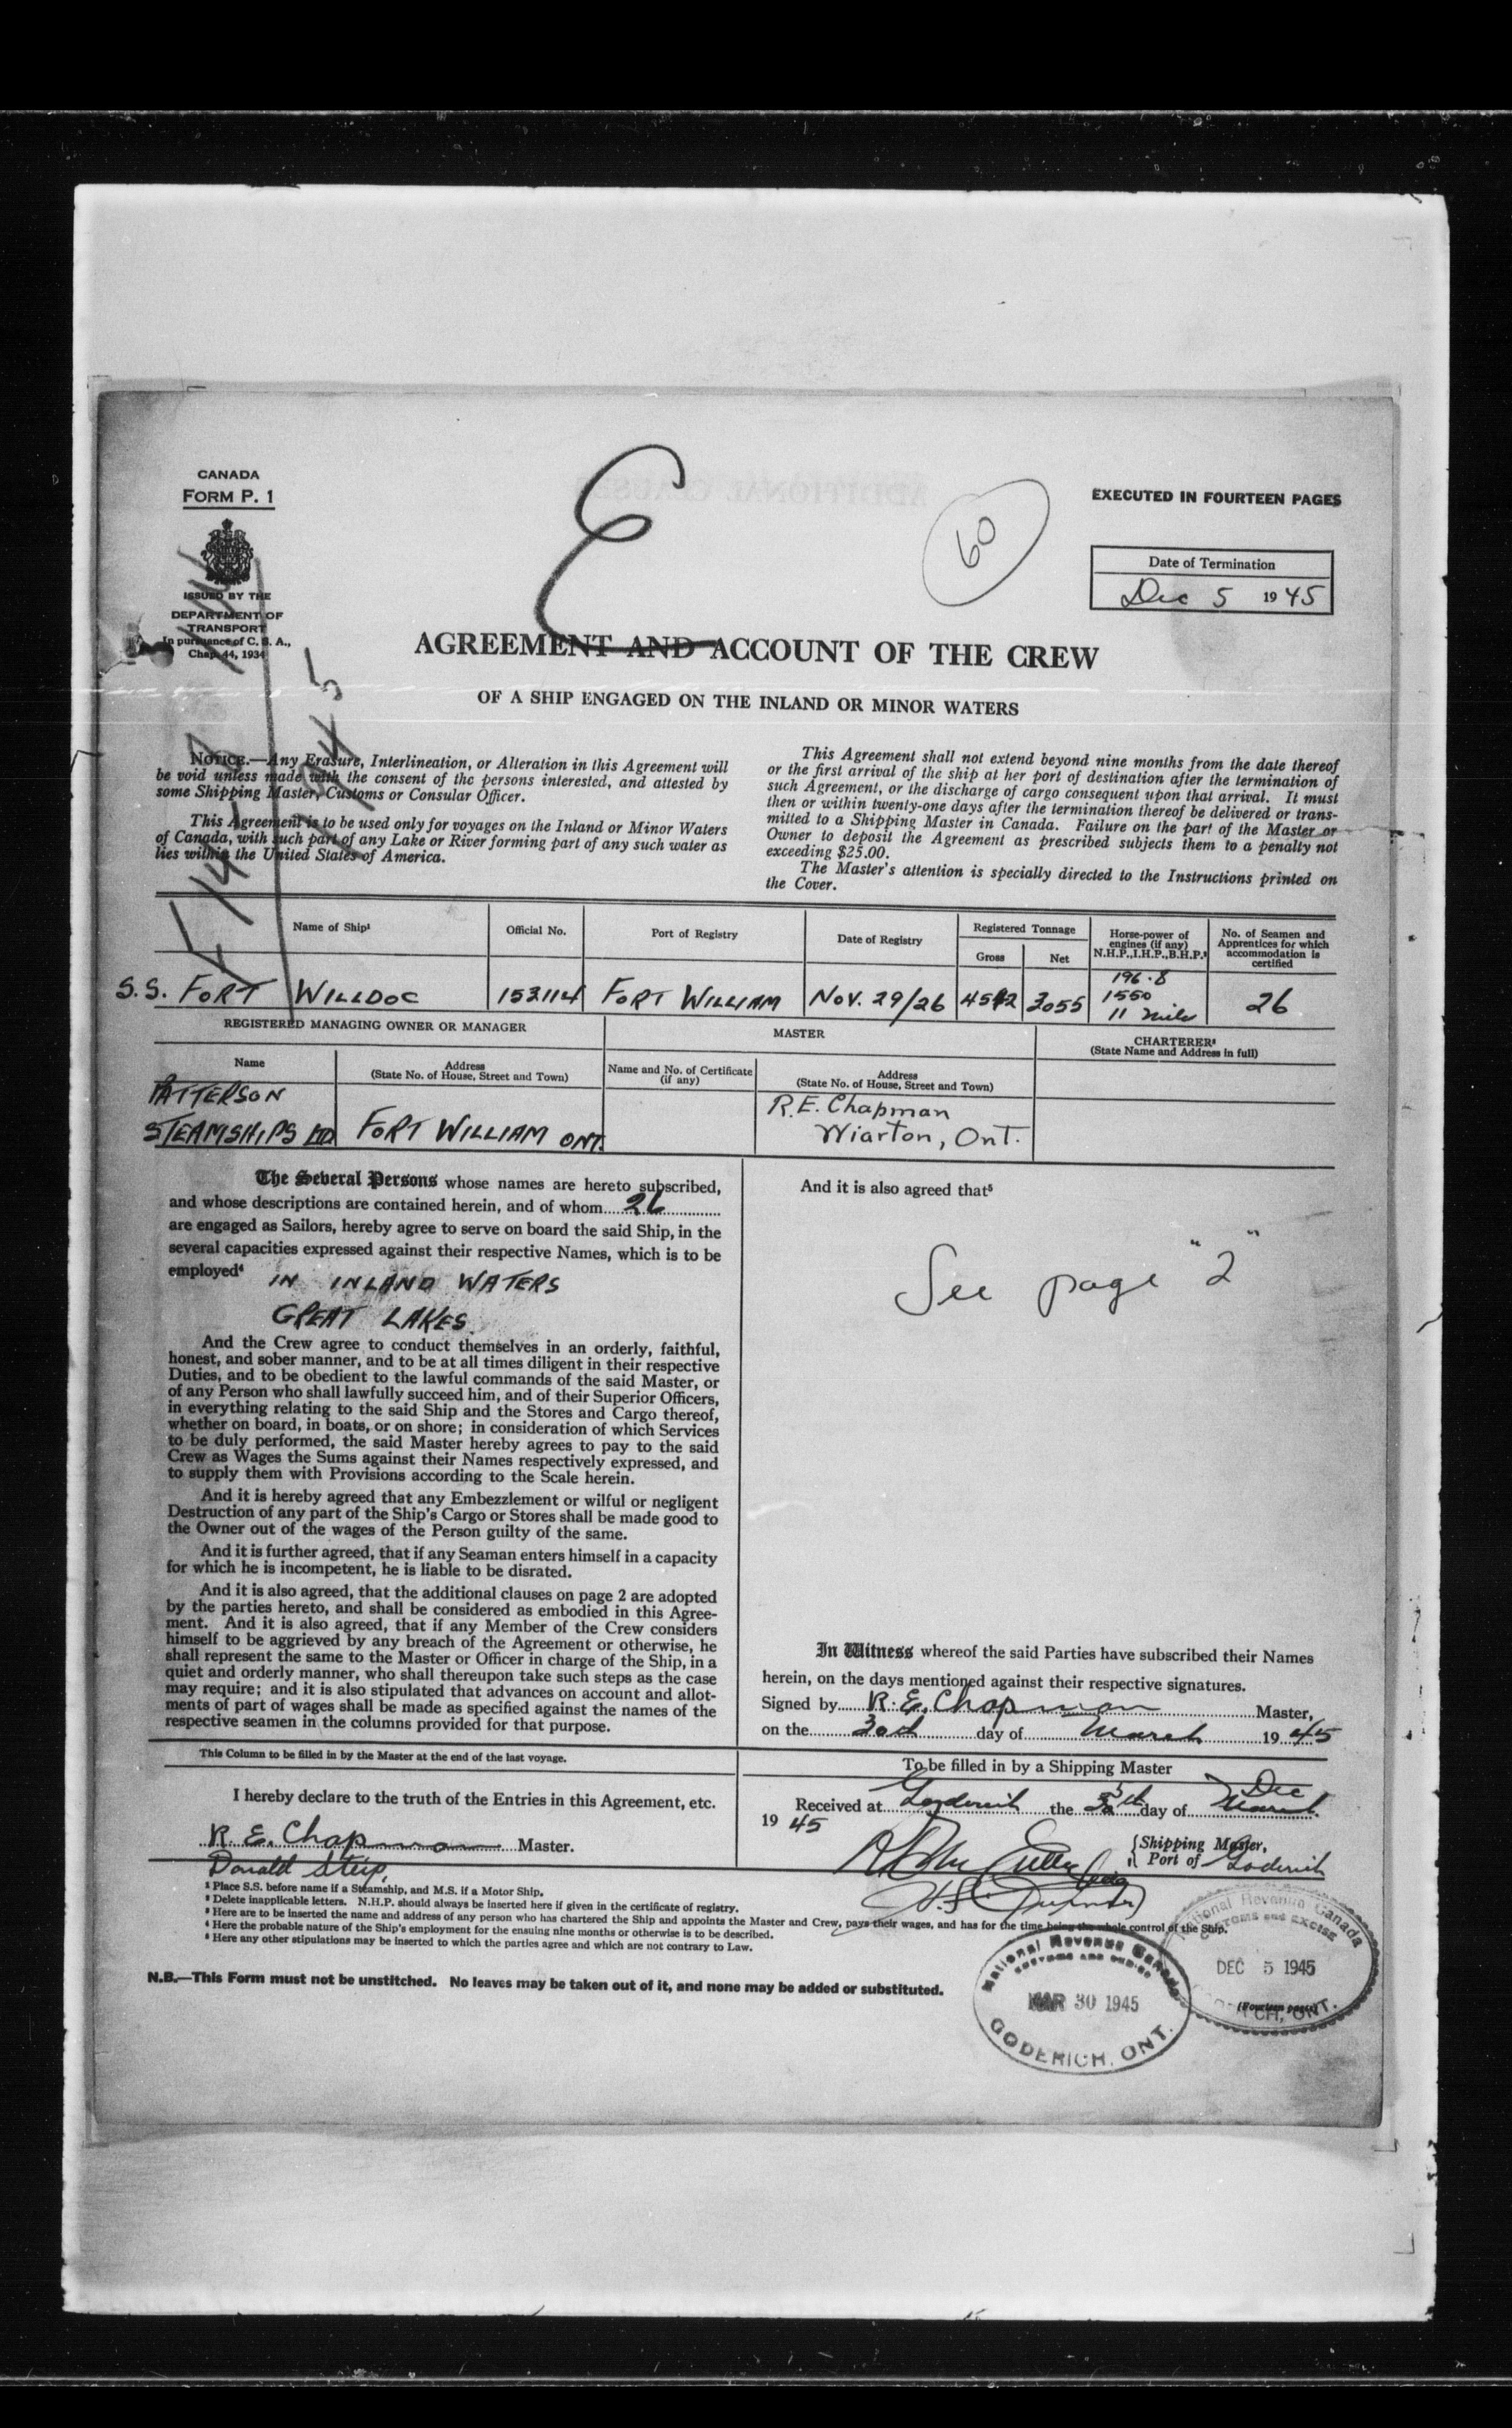 CANADA
FORM P. 1
ISSUED BY THE
DEPARTMENT OF
TRANSPORT
In pursuance of C. S. A.,
Chap. 44, 1934
E
60
EXECUTED IN FOURTEEN PAGES
Date of Termination
Dec 5 1945
AGREEMENT AND ACCOUNT OF THE CREW
OF A SHIP ENGAGED ON THE INLAND OR MINOR WATERS
NOTICE.—Any Erasure, Interlineation, or Alteration in this Agreement will
be void unless made with the consent of the persons interested, and attested by
some Shipping Master, Customs or Consular Officer.
This Agreement is to be used only for voyages on the Inland or Minor Waters
of Canada, with such part of any Lake or River forming part of any such water as
lies within the United States of America.
This Agreement shall not extend beyond nine months from the date thereof
or the first arrival of the ship at her port of destination after the termination of
such Agreement, or the discharge of cargo consequent upon that arrival. It must
then or within twenty-one days after the termination thereof be delivered or trans-
mitted to a Shipping Master in Canada. Failure on the part of the Master or
Owner to deposit the Agreement as prescribed subjects them to a penalty not
exceeding $25.00.
The Master's attention is specially directed to the Instructions printed on
the Cover.
Name of Ship¹
Official No.
Port of Registry
Date of Registry
Registered Tonnage
Gross
Net
Horse-power of
engines (if any)
N.H.P.,I.H.P.,B.H.P.²
No. of Seamen and
Apprentices for which
accommodation is
certified
S.S. FORT WILLDOC
153114
FORT WILLIAM
NOV. 29/26
4542
3055
196.8
1550
11 mile
26
REGISTERED MANAGING OWNER OR MANAGER
MASTER
CHARTERER³
(State Name and Address in full)
Name
Address
(State No. of House, Street and Town)
Name and No. of Certificate
(if any)
Address
(State No. of House, Street and Town)
PATTERSON
STEAMSHIPS LTD
FORT WILLIAM ONT.
R.E. Chapman
Wiarton, Ont.
The Several Persons whose names are hereto subscribed,
and whose descriptions are contained herein, and of whom 26
are engaged as Sailors, hereby agree to serve on board the said Ship, in the
several capacities expressed against their respective Names, which is to be
employed⁴ IN INLAND WATERS
GREAT LAKES
And the Crew agree to conduct themselves in an orderly, faithful,
honest, and sober manner, and to be at all times diligent in their respective
Duties, and to be obedient to the lawful commands of the said Master, or
of any Person who shall lawfully succeed him, and of their Superior Officers,
in everything relating to the said Ship and the Stores and Cargo thereof,
whether on board, in boats, or on shore; in consideration of which Services
to be duly performed, the said Master hereby agrees to pay to the said
Crew as Wages the Sums against their Names respectively expressed, and
to supply them with Provisions according to the Scale herein.
And it is hereby agreed that any Embezzlement or wilful or negligent
Destruction of any part of the Ship's Cargo or Stores shall be made good to
the Owner out of the wages of the Person guilty of the same.
And it is further agreed, that if any Seaman enters himself in a capacity
for which he is incompetent, he is liable to be disrated.
And it is also agreed, that the additional clauses on page 2 are adopted
by the parties hereto, and shall be considered as embodied in this Agree-
ment. And it is also agreed, that if any Member of the Crew considers
himself to be aggrieved by any breach of the Agreement or otherwise, he
shall represent the same to the Master or Officer in charge of the Ship, in a
quiet and orderly manner, who shall thereupon take such steps as the case
may require; and it is also stipulated that advances on account and allot-
ments of part of wages shall be made as specified against the names of the
respective seamen in the columns provided for that purpose.
And it is also agreed that⁵
See page "2"
In Witness whereof the said Parties have subscribed their Names
herein, on the days mentioned against their respective signatures.
Signed by R. E. Chapman Master,
on the 30th day of March 1945
This Column to be filled in by the Master at the end of the last voyage.
I hereby declare to the truth of the Entries in this Agreement, etc.
R. E. Chapman Master.
Donald Steip,
To be filled in by a Shipping Master
Received at Goderich the 5th day of Dec
1945
Shipping Master,
Port of Goderich
¹ Place S.S. before name if a Steamship, and M.S. if a Motor Ship.
² Delete inapplicable letters. N.H.P. should always be inserted here if given in the certificate of registry.
³ Here are to be inserted the name and address of any person who has chartered the Ship and appoints the Master and Crew, pays their wages, and has for the time being the whole control of the Ship.
⁴ Here the probable nature of the Ship's employment for the ensuing nine months or otherwise is to be described.
⁵ Here any other stipulations may be inserted to which the parties agree and which are not contrary to Law.
N.B.—This Form must not be unstitched. No leaves may be taken out of it, and none may be added or substituted.
(Fourteen pages)
National Revenue Canada
CUSTOMS AND EXCISE
MAR 30 1945
GODERICH, ONT.
National Revenue Canada
CUSTOMS AND EXCISE
DEC 5 1945